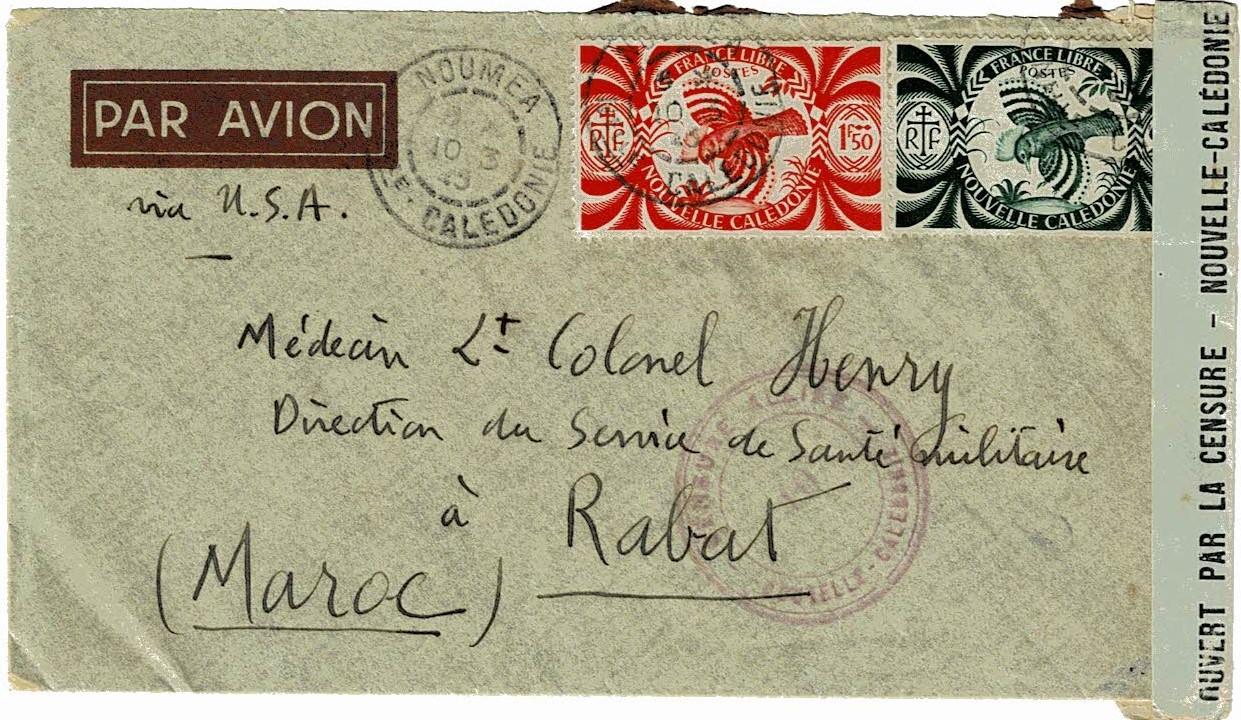 PAR AVION
via U.S.A.
NOUMEA
10 3
CALEDONIE
FRANCE LIBRE
POSTES
RF
1F50
NOUVELLE CALEDONIE
FRANCE LIBRE
POSTES
RF
NOUVELLE CALEDONIE
Médecin Lt Colonel Henry
Direction du Service de Santé militaire
à Rabat
(Maroc)
CENSURE
CALEDONIE
OUVERT PAR LA CENSURE - NOUVELLE-CALÉDONIE